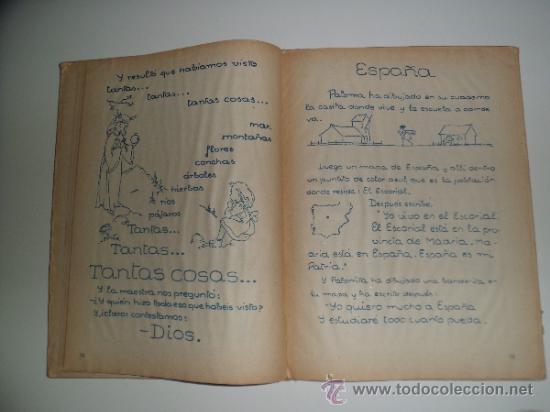 Y resultó que habíamos visto
tantas...
tantas...
tantas cosas...
mar
montañas
flores
conchas
árboles
hierbas
ríos
pájaros
Tantas...
Tantas...
Tantas cosas...
Y la maestra nos preguntó:
-¿Y quién hizo todo eso que habeis visto?
Y, ¡claro! contestamos:
-Dios.
España
Paloma ha dibujado en su cuaderno
la casita donde vive y la escuela a donde
va.
Luego un mapa de España y allí dentro
un puntito de color azul que es la población
donde reside: El Escorial.
Después escribe:
"Yo vivo en el Escorial.
El Escorial está en la pro
vincia de Madrid. Ma
drid está en España. España es mi
Patria."
Y Palomita ha dibujado una banderita en
su mapa y ha escrito después:
-"Yo quiero mucho a España
Y estudiaré todo cuanto pueda.
todocoleccion
www.todocoleccion.net